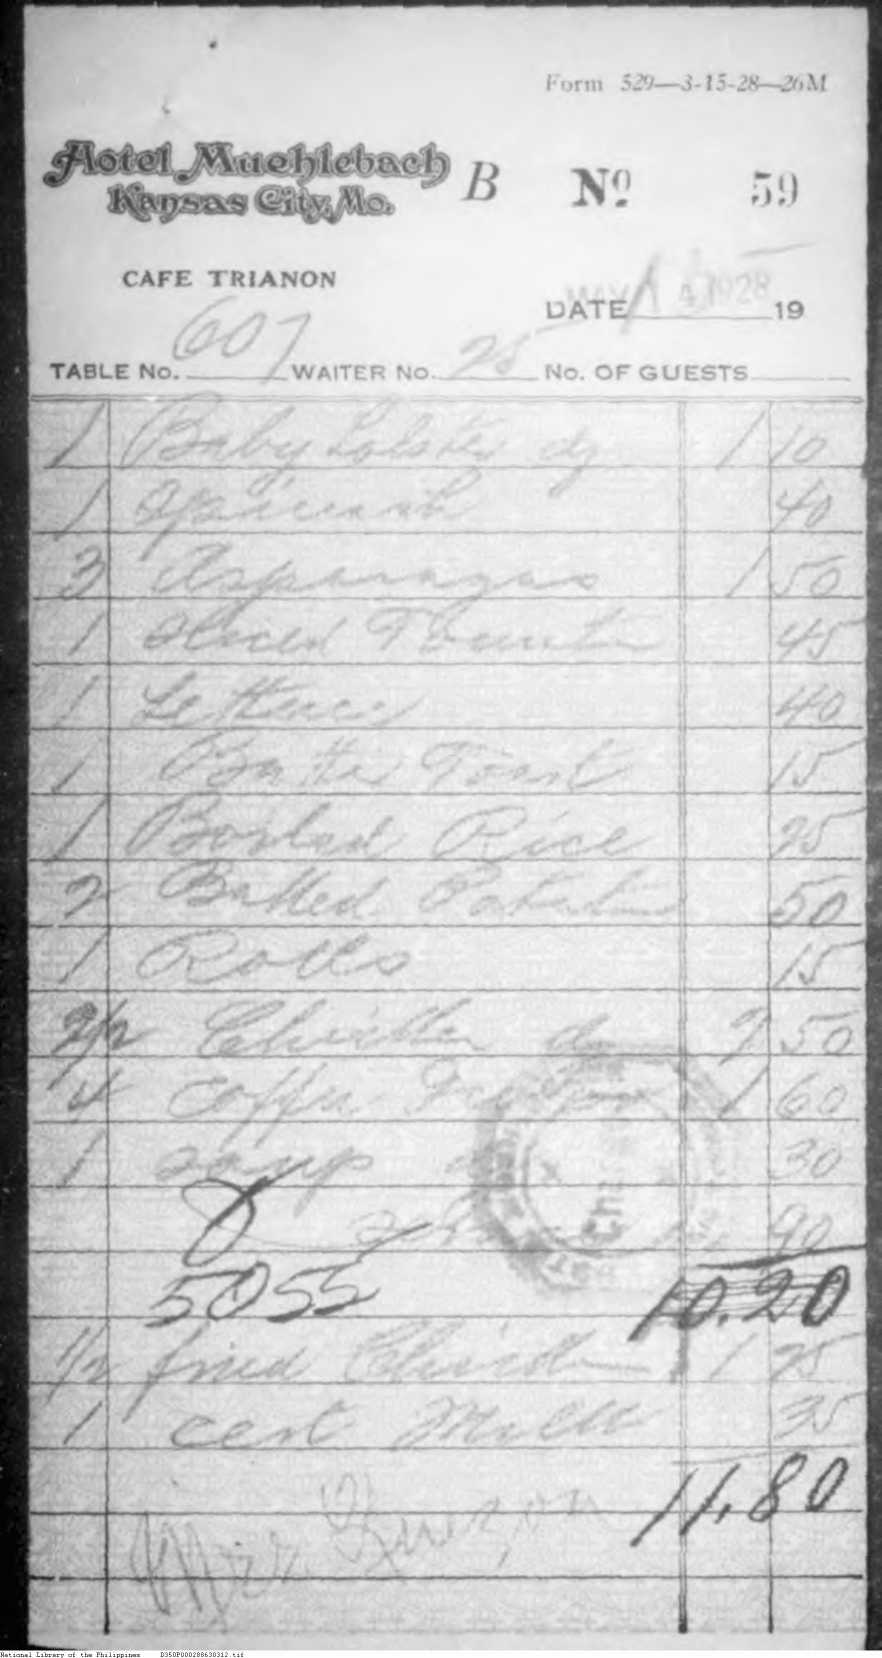 Form 529—3-15-28—26M
Hotel Muehlebach
Kansas City, Mo.
B Nº 59
CAFE TRIANON
DATE MAY 14 1928 19
TABLE No. 607 WAITER No. 25 No. OF GUESTS
1 Baby Lobster dg 1 10
1 Spinach 40
3 Asparagus 1 50
1 Sliced Tomato 45
1 Lettuce 40
1 Butter Toast 15
1 Boiled Rice 25
2 Baked Potato 50
1 Rolls 15
2/2 Chicken 2 50
4 Coffee 1 60
1 Soup 30
90
5055 10.20
1/2 fried Chicken 1 25
1 cert Milk 35
11.80
Mrs Quezon
National Library of the Philippines D350P000288630312.tif